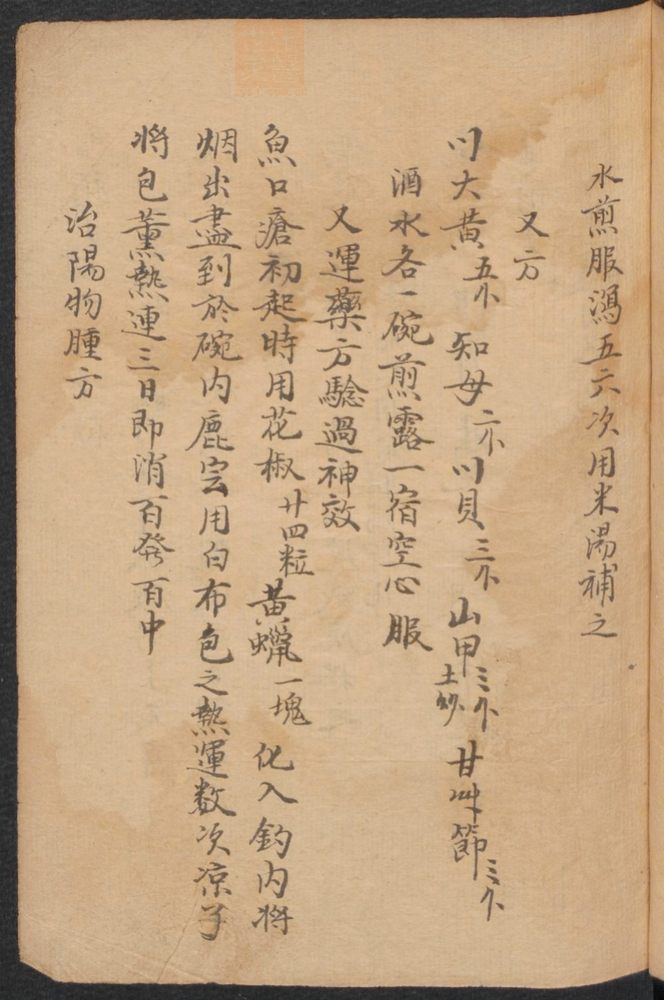 水煎服瀉五六次用米湯補之
又方
川大黄五个 知母六个 川貝三个 山甲三个土炒 甘艸節三个
酒水各一碗煎露一宿空心服
又運藥方驗過神效
魚口瘡初起時用花椒廿四粒 黄蠟一塊 化入鈞内将
烟出盡到於碗内鹿宫用白布包之熱運数次凉了
将包薰熱連三日即消百發百中
治陽物腫方